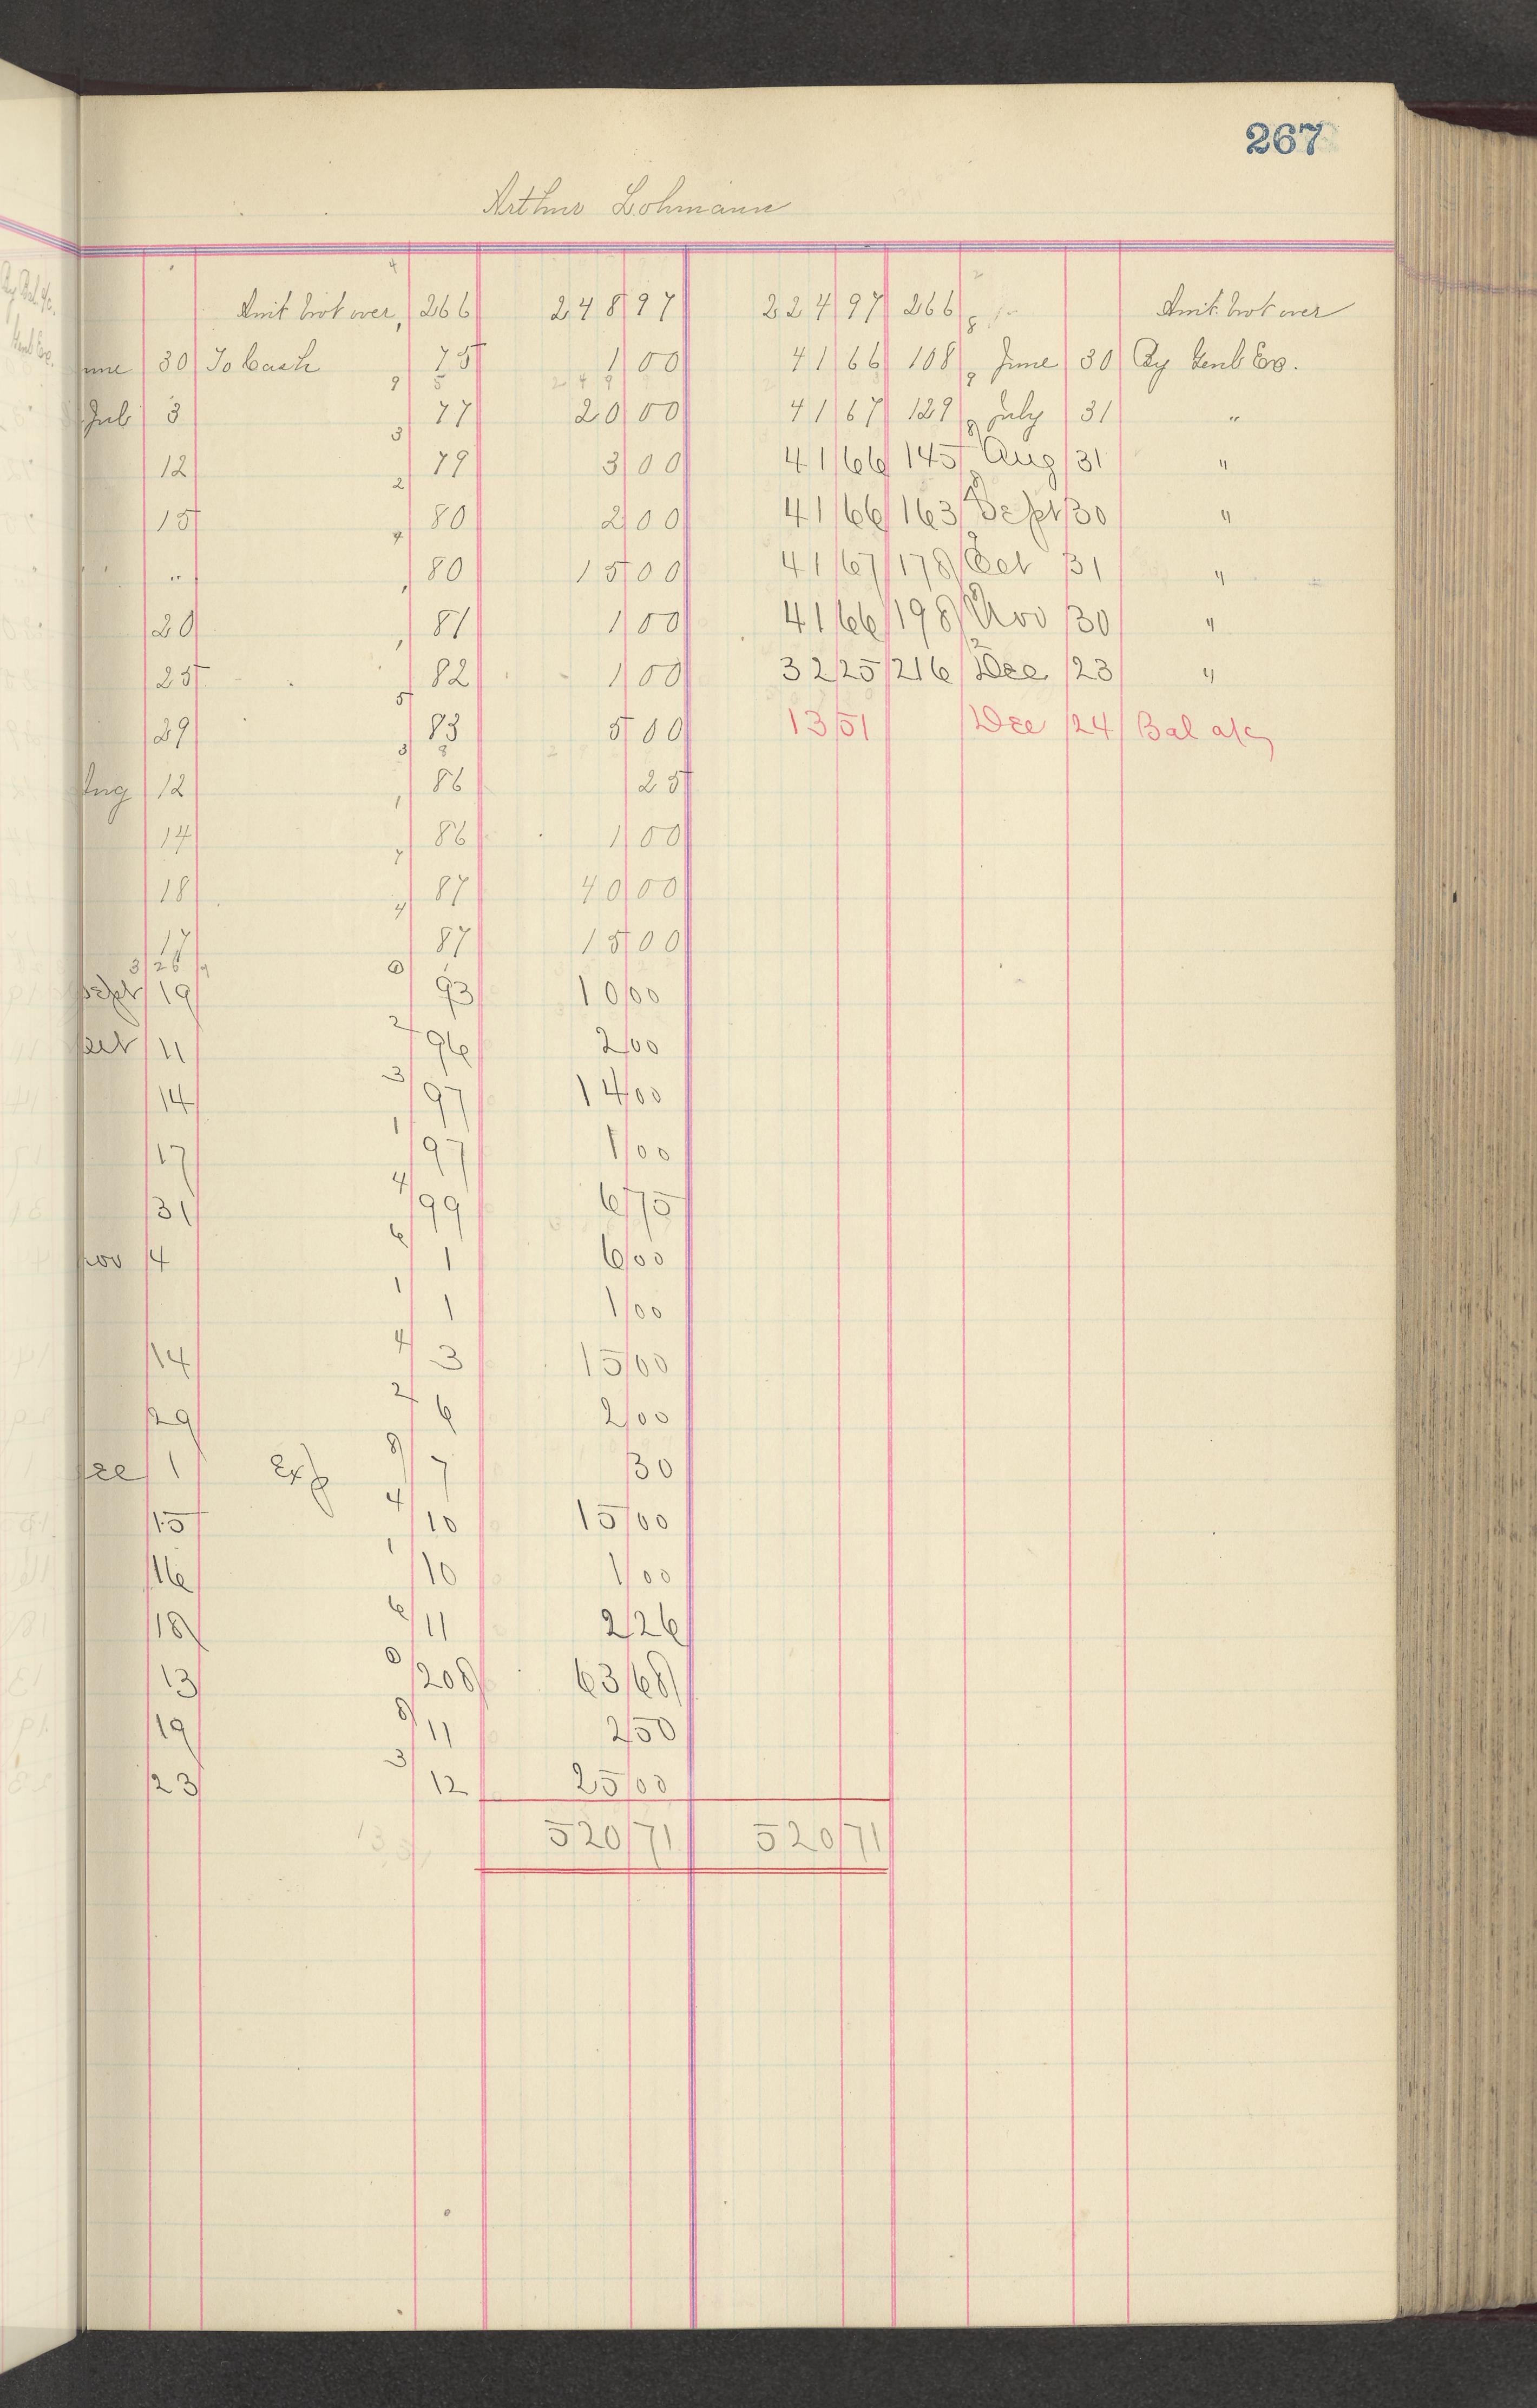 267
Arthur Lohmann
Amt brot over, 266 248 97 224 97 266 Amt. brot over
June 30 To Cash 75 1 00 41 66 108 June 30 By Genl Ex.
Jul 3 77 20 00 41 67 129 July 31 "
12 79 3 00 41 66 145 Aug 31 "
15 80 2 00 41 66 163 Sept 30 "
" 80 15 00 41 67 178 Oct 31 "
20 81 1 00 41 66 198 Nov 30 "
25 82 1 00 32 25 216 Dec 23 "
29 83 5 00 13 51 Dec 24 Bal a/c
Aug 12 86 25
14 86 1 00
18 87 40 00
17 87 15 00
Sept 19 93 10 00
Oct 11 96 2 00
14 97 14 00
17 97 1 00
31 99 6 75
Nov 4 1 6 00
1 1 00
14 3 15 00
29 6 2 00
Dec 1 Exp 7 30
15 10 15 00
16 10 1 00
18 11 2 26
13 208 63 68
19 11 2 50
23 12 25 00
520 71 520 71